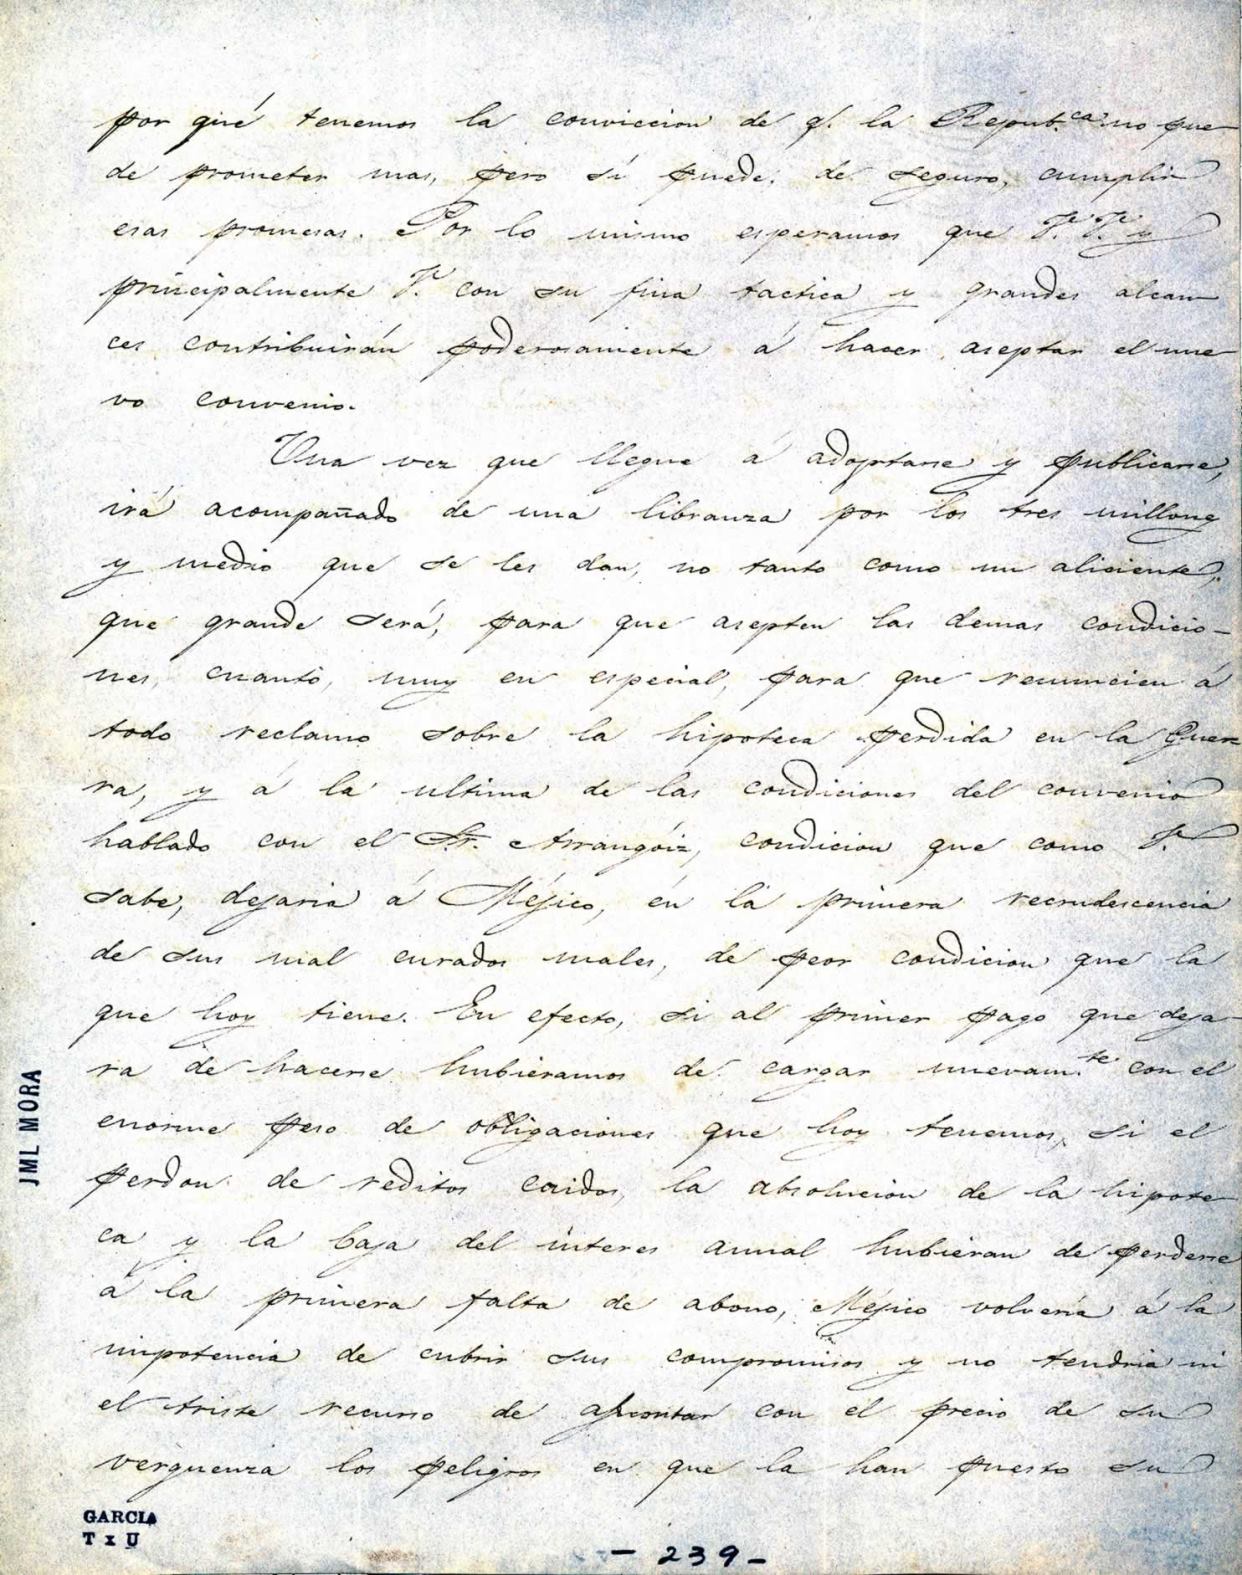 por qué tenemos la conviccion de q. la Repub.ca no pue
de prometer mas, pero sí puede, de seguro, cumplir
esas promesas. Por lo mismo esperamos que V.V. y
principalmente V. con su fina tactica y grandes alcan
ces contribuirán poderosamente á hacer aseptar el nue
vo convenio.
Una vez que llegue á adoptarse y publicarse,
irá acompañado de una libranza por los tres millones
y medio que se les dan, no tanto como un aliciente,
que grande será, para que asepten las demas condicio-
nes, cuanto, muy en especial, para que renuncien á
todo reclamo sobre la hipoteca perdida en la Guer
ra, y á la ultima de las condiciones del convenio
hablado con el Sr. Arrangóiz, condicion que como V.
sabe, dejaria á Méjico, en la primera recrudescencia
de sus mal curados males, de peor condicion que la
que hoy tiene. En efecto, si al primer pago que deja-
ra de hacerse hubieramos de cargar nuevam.te con el
enorme peso de obligaciones que hoy tenemos, si el
perdon de reditos caidos, la absolucion de la hipote
ca y la baja del interes anual hubieran de perderse
á la primera falta de abono, Méjico volveria á la
impotencia de cubrir sus compromisos y no tendria ni
el triste recurso de apcontar con el precio de su
verguenza los peligros en que la han puesto su
JML MORA
GARCIA
T x U
- 239 -